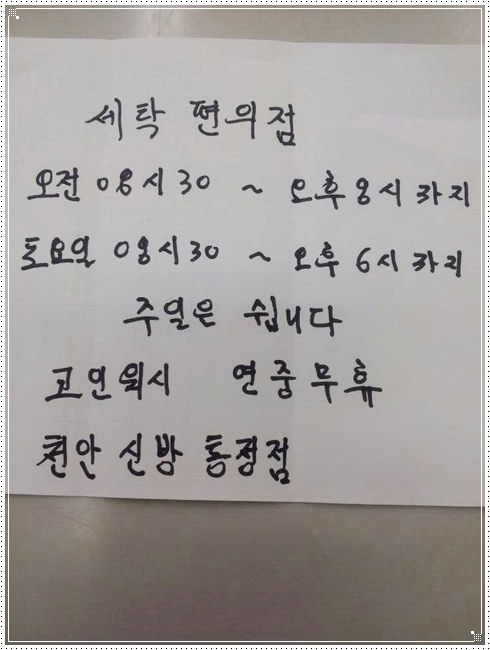 세탁 편의점
오전 08시 30 ~ 오후 8시 까지
토요일 08시 30 ~ 오후 6시 까지
주일은 쉽니다
코인워시 연중무휴
천안 신방 통정점